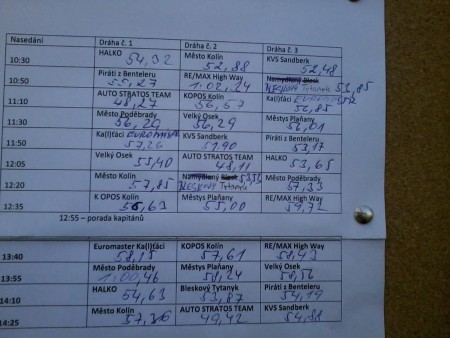 Nasedání Dráha č. 1 Dráha č. 2 Dráha č. 3
10:30 HALKO Město Kolín KVS Sandberk
54,32 52,88 52,48
10:50 Piráti z Benteleru RE/MAX High Way Namydlený Blesk
55,27 1:02,24 Tetanek 53,85
11:10 AUTO STRATOS TEAM KOPOS Kolín Ka(l)ťáci
48,27 56,57 56,85
11:30 Město Poděbrady Velký Osek Městys Plaňany
56,29 56,29 56,01
11:50 Ka(l)ťáci EUROMASTER KVS Sandberk Piráti z Benteleru
57,26 51,90 53,17
12:05 Velký Osek AUTO STRATOS TEAM HALKO
55,40 48,11 53,65
12:20 Město Kolín Namydlený Blesk Město Poděbrady
57,85 Tetanek 57,33
12:35 K OPOS Kolín Městys Plaňany RE/MAX High Way
56,63 55,00 59,72
12:55 – porada kapitánů
13:40 Euromaster Ka(l)ťáci KOPOS Kolín RE/MAX High Way
57,61
13:55 Město Poděbrady Městys Plaňany Velký Osek
1:00,46 58,24
14:10 HALKO Bleskový Tytanyk Piráti z Benteleru
54,63 53,87 54,19
14:25 Město Kolín AUTO STRATOS TEAM KVS Sandberk
49,42 54,88